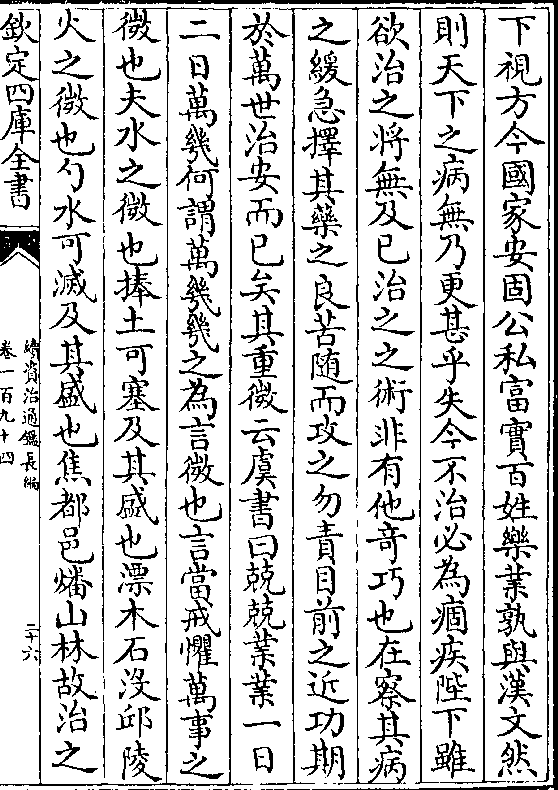 下視方今國家安固公私富實百姓樂業孰與漢文然
則天下之病無乃更甚乎失今不治必為痼疾陛下雖
欲治之将無及已治之之術非有他竒巧也在察其病
之緩急擇其藥之良苦随而攻之勿責目前之近功期
於萬世治安而已矣其重微云虞書曰兢兢業業一日
二日萬幾何謂萬幾幾之為言微也言當戒懼萬事之
微也夫水之微也捧土可塞及其盛也漂木石没邱陵
火之微也勺水可滅及其盛也焦都邑燔山林故治之
欽定四庫全書
續資治通鑑長編
卷一百九十四
二十六